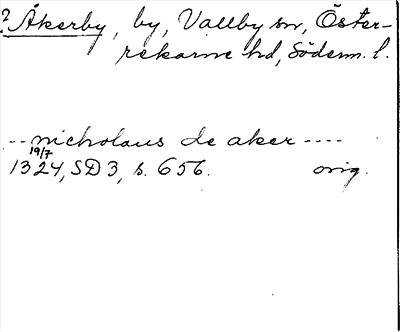 ? Åkerby, by, Vallby sn, Öster-
rekarne hd, Söderm. l.
-- nicholaus de aker ----
19/7
1324, SD 3, s. 656. orig.